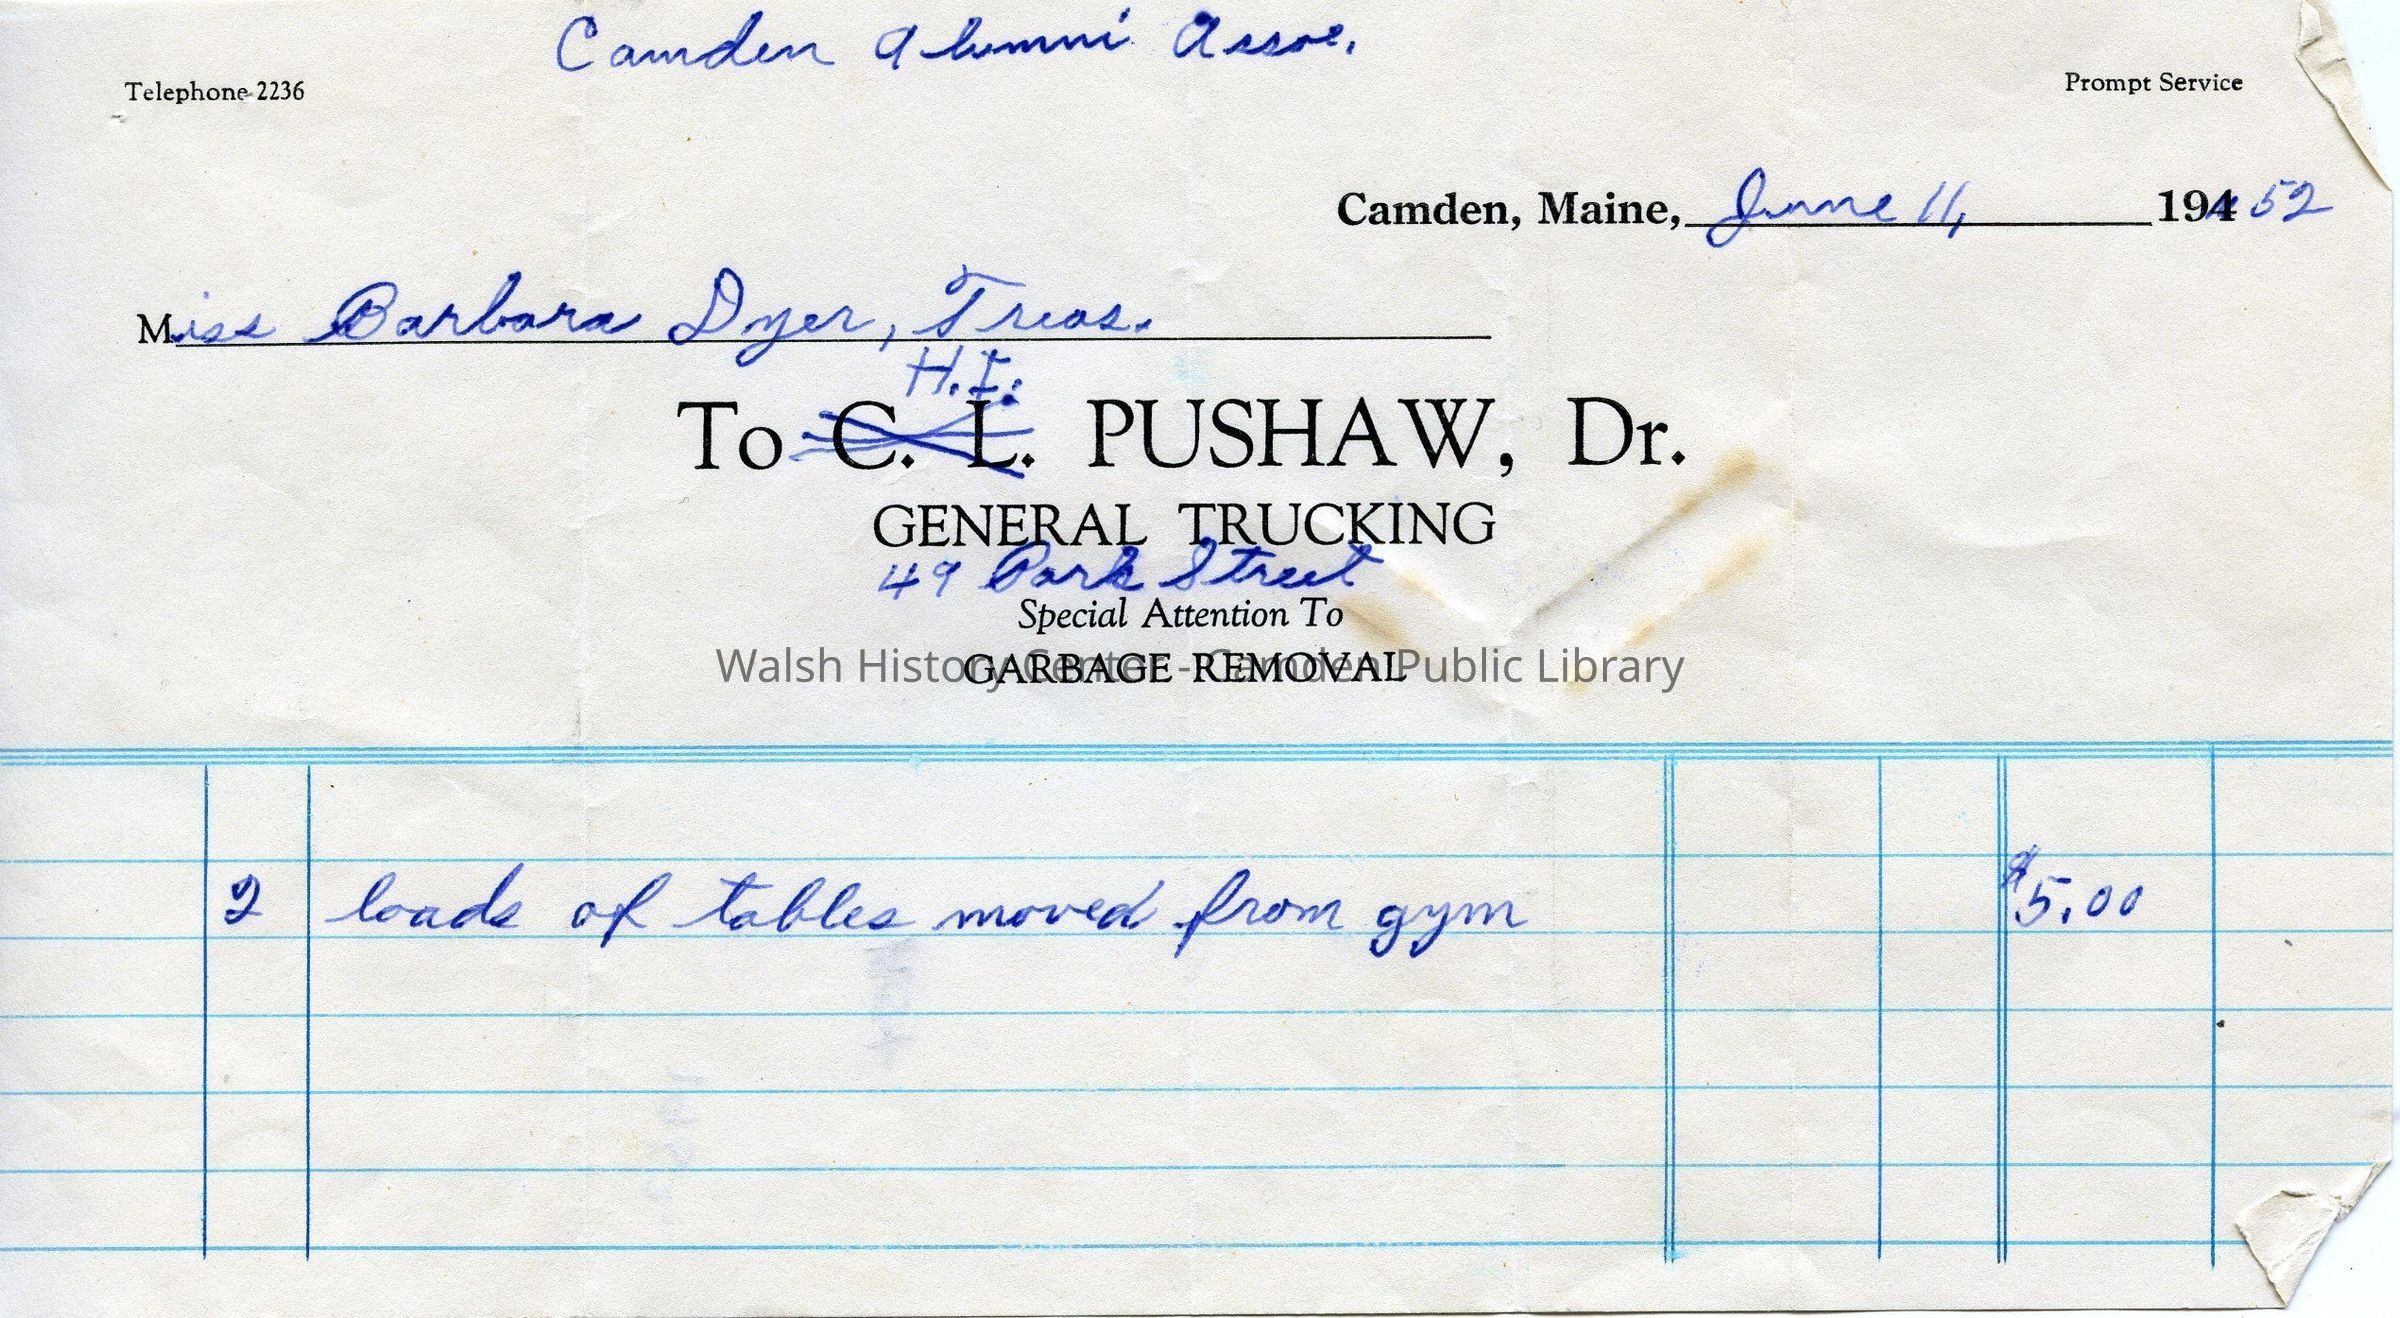 Camden Alumni Assoc.
Telephone 2236
Prompt Service
Camden, Maine, June 11, 194 52
Miss Barbara Dyer, Treas.
H.I.
To C. L. PUSHAW, Dr.
GENERAL TRUCKING
49 Park Street
Special Attention To
GARBAGE REMOVAL
Walsh History Center - Camden Public Library
2 loads of tables moved from gym $5.00